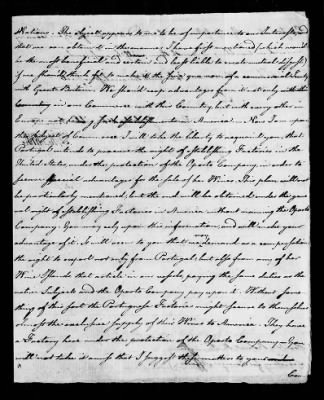 Nations. This object appears to me to be of importance to our Interests, and
that we can obtain it in the manner I have before mentioned (which would
be the most beneficial and certain and least liable to create mutual disgust)
if we should think fit to make it the sine qua non of a commercial treaty
with Great Britain. We should reap advantage from it not only with this
Country in our Commerce with this Country, but with every other in
Europe
subject of Commerce I will take the liberty to acquaint you, that
Portugal intends to procure the right of establishing Factories in the
United States, under the protection of the Oporto Company, in order to
secure special advantages for the sale of her Wines. This plan will not
be particularly mentioned; but the end will be obtained under the gene-
ral right of establishing Factories in America without naming the Oporto
Company. You may rely upon this information, and will make your
advantage of it. It will seem to you that we may demand as a compensation
the right to export not only from Portugal, but also from any of her
Wine Islands that article in our vessels, paying the same duties as the
native Subjects and the Oporto Company pay upon it. Without some
thing of this sort the Portuguese Factories might secure to themselves
almost the exclusive supply of their Wines to America. They have
a Factory here under the protection of the Oporto Company. You
will not take it amiss that I suggest these matters to your
Con